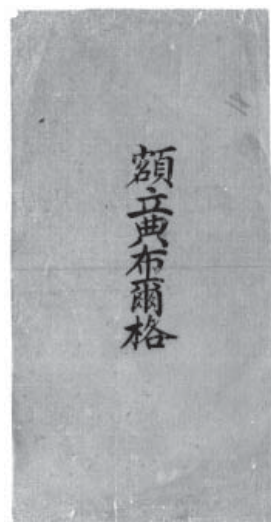 額立典布爾格